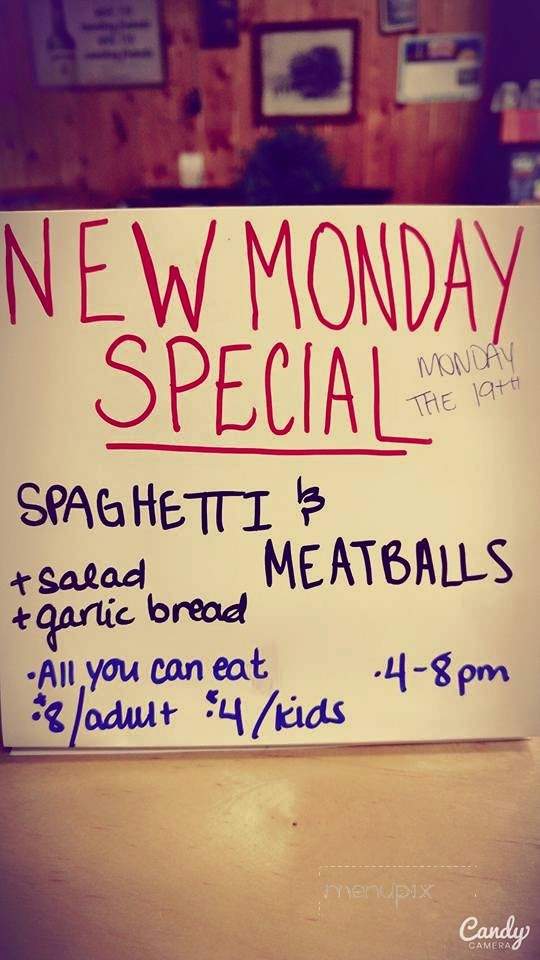 NEW MONDAY
SPECIAL
MONDAY
THE 19TH
SPAGHETTI &
MEATBALLS
+ salad
+ garlic bread
• All you can eat
• 4-8pm
• $8/adult • $4/kids
menupix
Candy
CAMERA